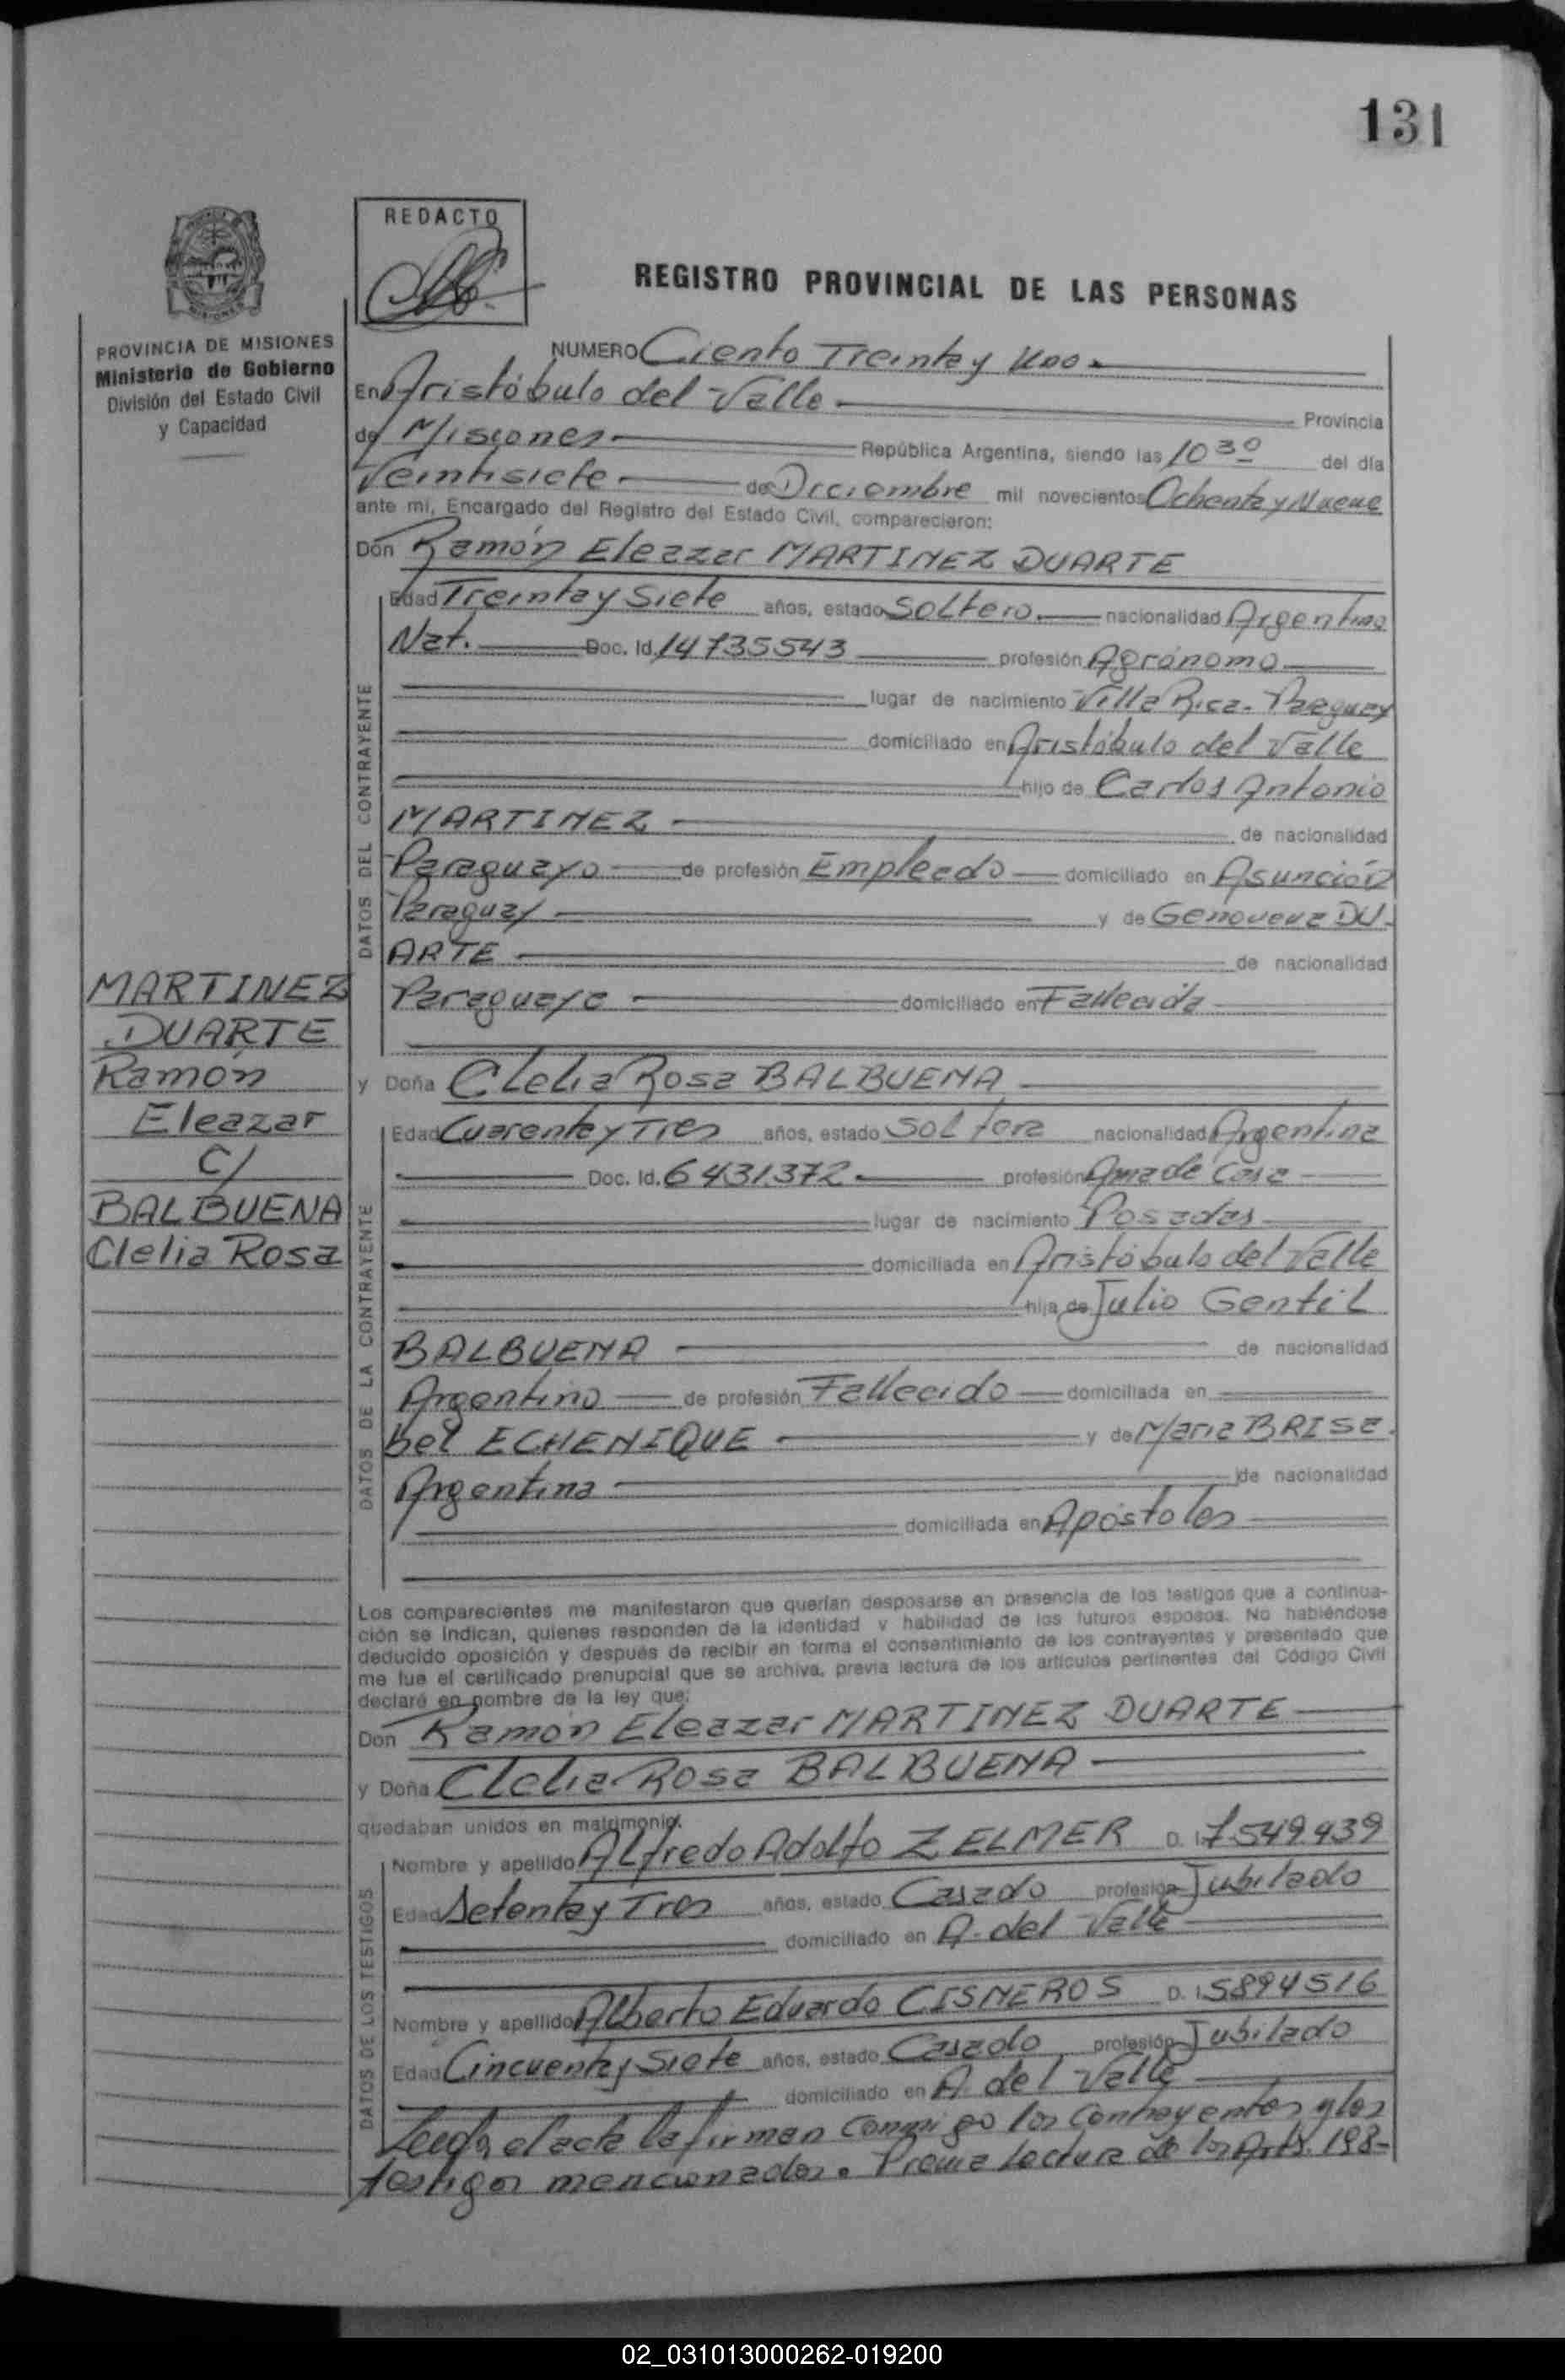 131
REDACTO
REGISTRO PROVINCIAL DE LAS PERSONAS
PROVINCIA DE MISIONES
Ministerio de Gobierno
División del Estado Civil
y Capacidad
NUMERO Ciento Treinta y Uno
En Aristóbulo del Valle Provincia
de Misiones República Argentina, siendo las 10 30 del día
Veintisiete de Diciembre mil novecientos Ochenta y Nueve
ante mí, Encargado del Registro del Estado Civil, comparecieron:
Don Ramón Eleazar MARTINEZ DUARTE
Edad Treinta y Siete años, estado Soltero nacionalidad Argentino
Nat. Doc. Id. 14735543 profesión Agrónomo
lugar de nacimiento Villa Rica - Paraguay
domiciliado en Aristóbulo del Valle
hijo de Carlos Antonio
MARTINEZ de nacionalidad
Paraguayo de profesión Empleado domiciliado en Asunción
Paraguay y de Genoveva DU-
ARTE de nacionalidad
Paraguaya domiciliado en Fallecida
DATOS DEL CONTRAYENTE
MARTINEZ
DUARTE
Ramón
Eleazar
C/
BALBUENA
Clelia Rosa
y Doña Clelia Rosa BALBUENA
Edad Cuarenta y Tres años, estado Soltera nacionalidad Argentina
Doc. Id. 6431372 profesión Ama de Casa
lugar de nacimiento Posadas
domiciliada en Aristóbulo del Valle
hija de Julio Gentil
BALBUENA de nacionalidad
Argentino de profesión Fallecido domiciliada en
bel ECHENIQUE y de Maria BRISA
Argentina de nacionalidad
domiciliada en Apóstoles
DATOS DE LA CONTRAYENTE
Los comparecientes me manifestaron que querían desposarse en presencia de los testigos que a continua-
ción se indican, quienes responden de la identidad y habilidad de los futuros esposos. No habiéndose
deducido oposición y después de recibir en forma el consentimiento de los contrayentes y presentado que
me fue el certificado prenupcial que se archiva, previa lectura de los artículos pertinentes del Código Civil
declaré en nombre de la ley que:
Don Ramón Eleazar MARTINEZ DUARTE
y Doña Clelia Rosa BALBUENA
quedaban unidos en matrimonio.
Nombre y apellido Alfredo Adolfo ZELMER D. I. 7.549.939
Edad Setenta y Tres años, estado Casado profesión Jubilado
domiciliado en A. del Valle
Nombre y apellido Alberto Eduardo CISNEROS D. I. 5894516
Edad Cincuenta y Siete años, estado Casado profesión Jubilado
domiciliado en A. del Valle
DATOS DE LOS TESTIGOS
Leída el acta la firman conmigo los Contrayentes y los
testigos mencionados. Previa Lectura de los Arts. 198-
02_031013000262-019200